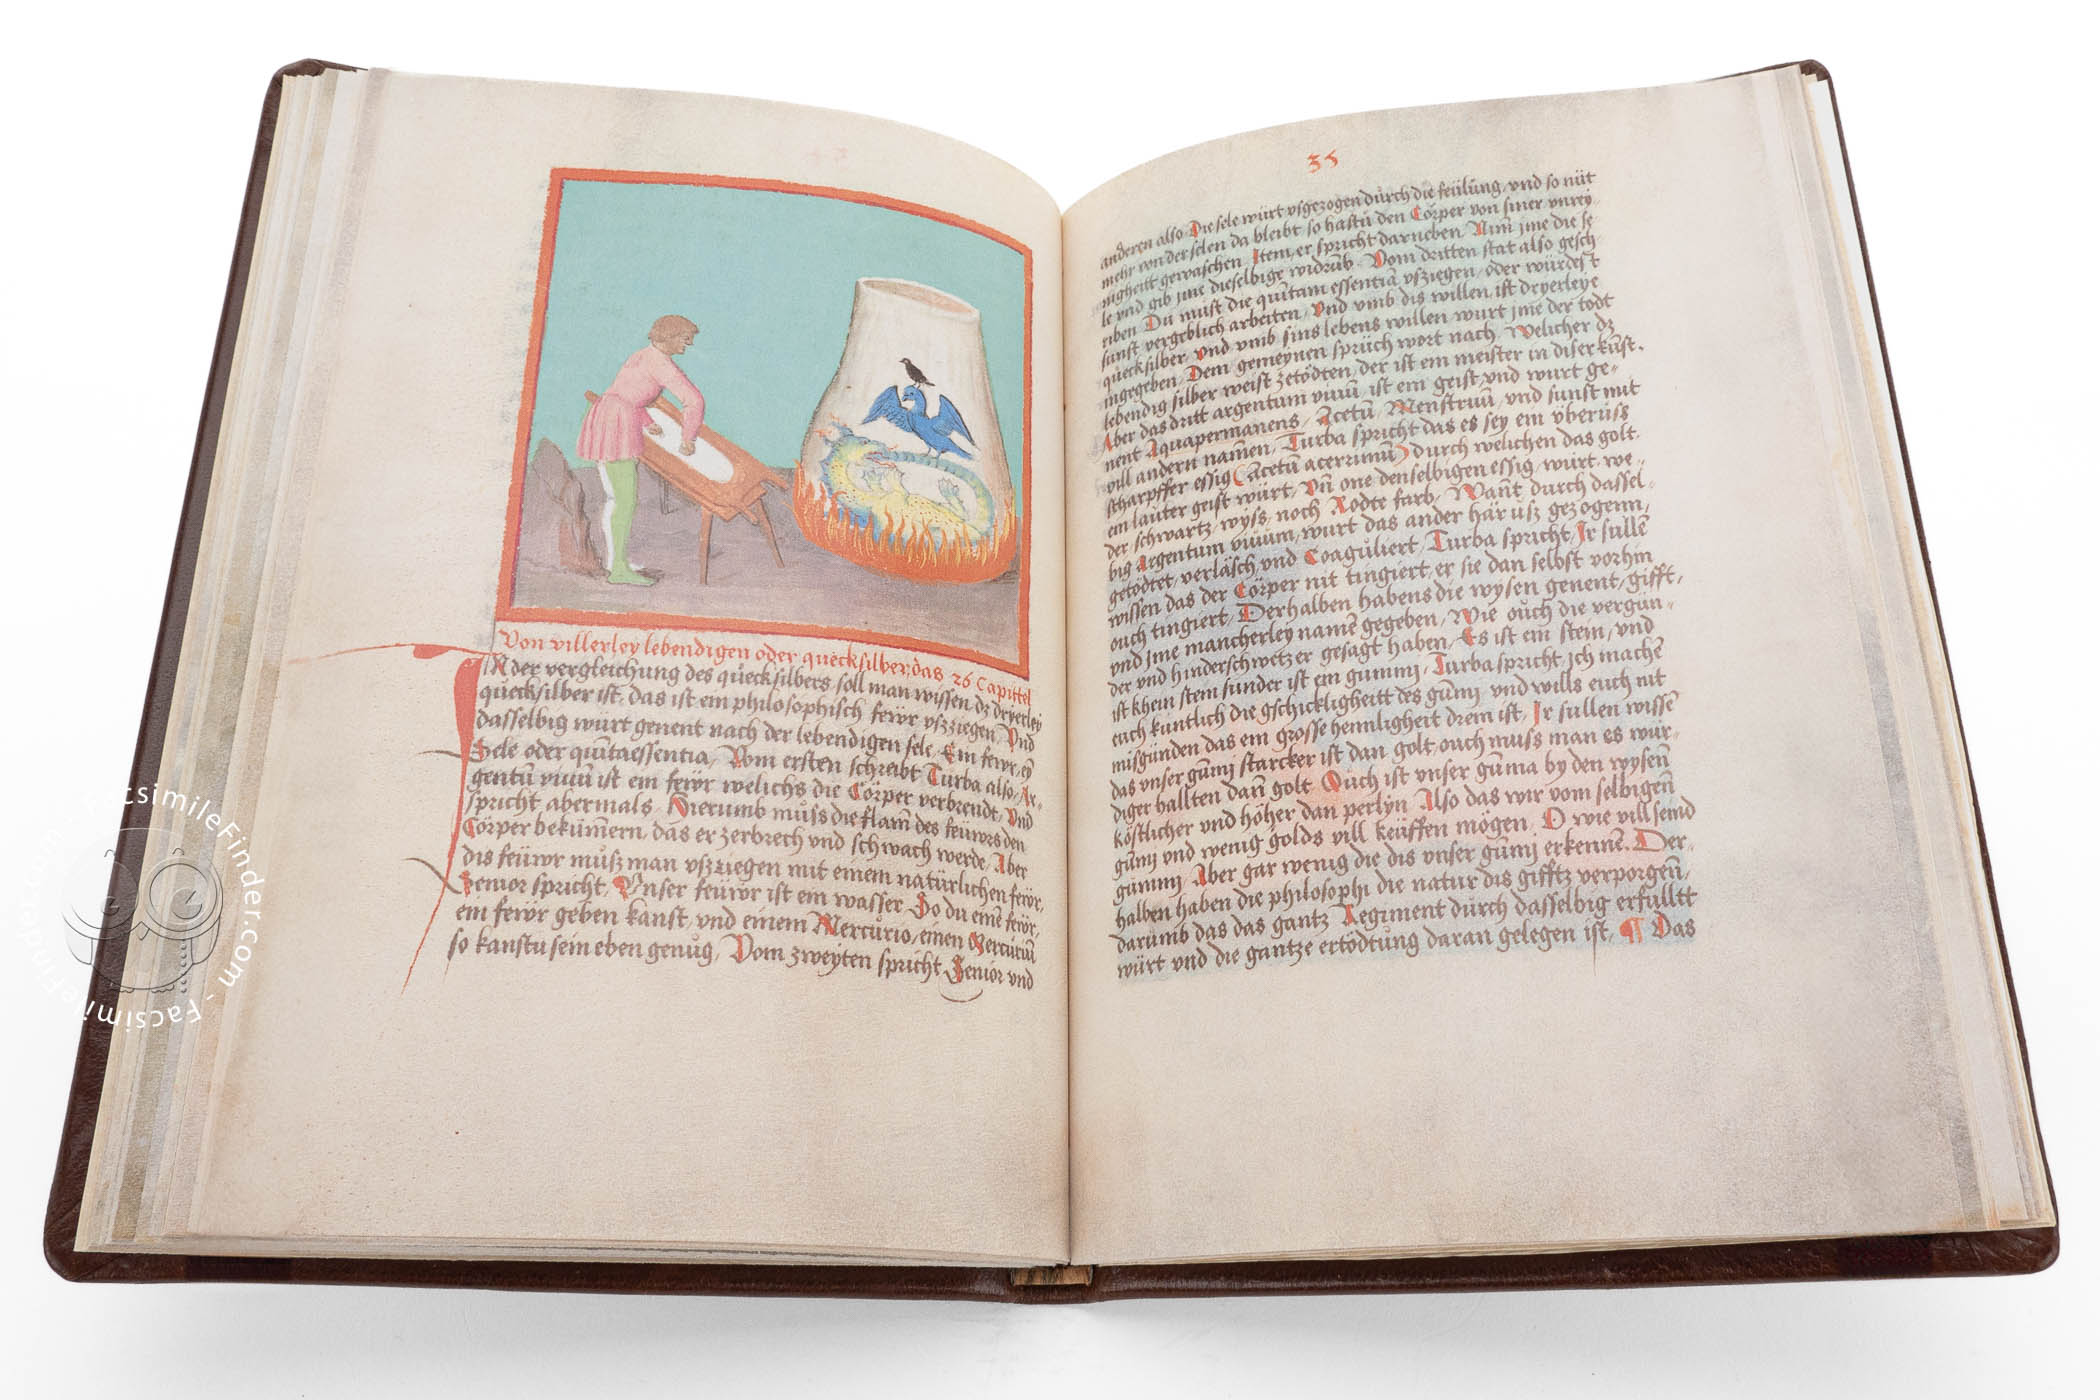 Von villerley lebendigen oder quecksilber, das 26 Capittel
IN der vergleichung des quecksilbers soll man wissen dz dryerley
quecksilber ist, das ist ein philosophisch fewr vszziegen, Vnd
dasselbig würt genent nach der lebendigen sele, Ein fewr, ey
Sele oder quintaessentia, Vom ersten schreibt Turba also, Ar-
gentum viuum ist ein fewr welichs die Cörper verbrendt, Vnd
spricht abermals, Hierumb muss die flam des feuwrs den
Cörper bekümern, das er zerbrech vnd schwach werde, Aber
dis feüwr muss man vszziegen mit einem natürlichen fewr,
Senior spricht, Vnser feuwr ist ein wasser, So du eine fewr,
ein fewr geben kanst, vnd einem Mercurio, einen Mercurium
so kanstu sein eben genug, Vom zweyten spricht Senior vnd
35
anderen also, Die sele würt vsgezogen durch die feülung, vnd so nüt
mehr von der selen da bleibt so hastu den Cörper von siner vnrey-
nigheitt gewaschen, Item, er spricht darneben, Nim jme die se-
le vnd gib jme dieselbige widrumb, Vom dritten stat also gesch-
riben Du must die quintam essentia vsziegen, oder würdest
sunst vergeblich arbeiten, Vnd vmb dis willen, ist dryerleye
quecksilber, vnd vmb sins lebens willen wurt jme der todt
ingegeben, Dem gemeynen sprüch wort nach, Welicher dz
lebendig silber weist zetödten, der ist ein meister in diser kunst,
Aber das dritt argentum viuum, ist ein geist, vnd wurt ge-
nent Aquapermanens, Acetū, Menstruū, vnd sunst mit
vill andern namen, Turba spricht das es sey ein vberuss
scharpffer essig (Acetū acerrimum) durch welichen das golt,
ein lauter geist würt, Vn one denselbigen essig, würt, we-
der, schwartz, wyss, noch Rodte farb, Want durch dassel-
big Argentum viuum, wurt das ander har usz gezogenn,
getödtet, verläsch, vnd Coaguliert, Turba spricht, Ir sullē
wissen das der Cörper nit tingiert, er sie dan selbst vorhin
ouch tingiert, Derhalben habens die wysen genent, gifft,
vnd jme mancherley namē gegeben, Wie ouch die vergün-
der vnd hinderschwetzer gesagt haben, Es ist ein stein, vnd
ist khein stein sunder ist ein gummj, Turba spricht, jch machē
euch kuntlich die gschickligheitt des gumj, vnd wills euch nit
misgünden das ein grosse heimligheit drein ist, Ir sullen wissē
das vnser gumj starcker ist dan golt, ouch muss man es wür-
diger hallten dan golt, Ouch ist vnser guma by den wysen
köstlicher vnd höher dan perlyn, Also das wir vom selbigen
gumj vnd wenig golds vill keüffen mögen, O wie vill seind
gummj, Aber gar wenig die dis vnser gumj erkennē, Der-
halben haben die philosophi die natur dis gifftz verporgen,
darumb das das gantz Regiment durch dasselbig erfulltt
würt vnd die gantze ertödtung daran gelegen ist, ¶ Das
FacsimileFinder.com · FacsimileFinder.com